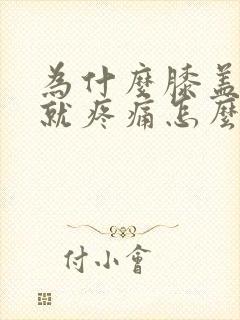 為什麼膝盖
就疼痛怎麼
付小會